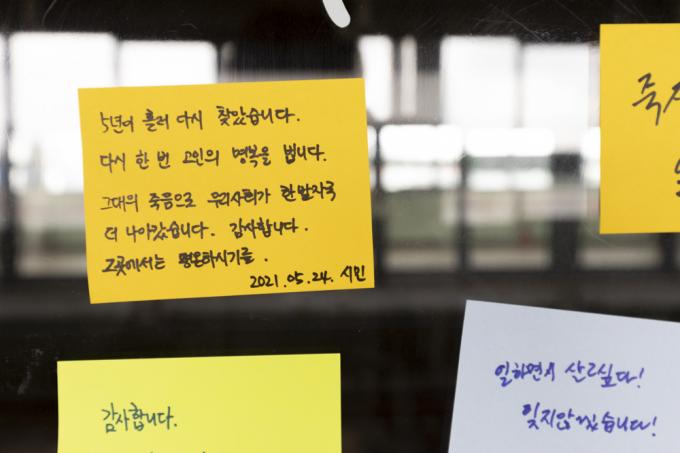 5년이 흘러 다시 찾았습니다.
다시 한 번 고인의 명복을 빕니다.
그대의 죽음으로 우리사회가 한발자국
더 나아갔습니다. 감사합니다.
그곳에서는 평온하시기를.
2021.05.24. 시민
감사합니다.
일하면서 살고싶다!
잊지않겠습니다!